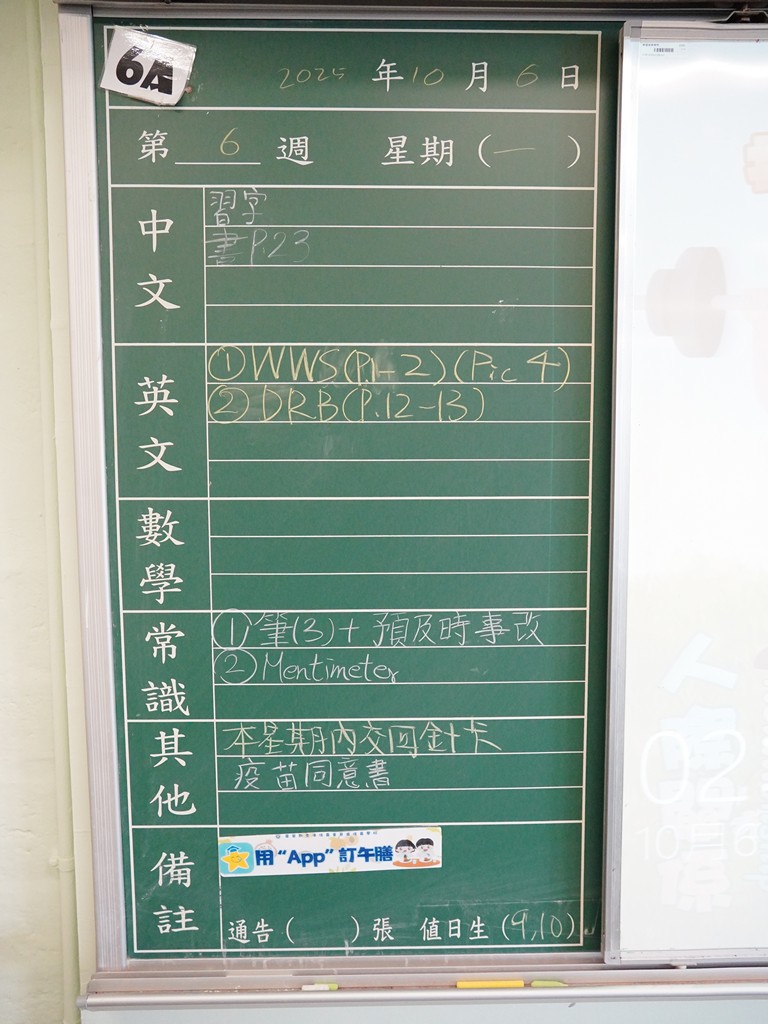 6A
2025年10月6日
第6週 星期(一)
中文
習字
書P.23
英文
①WWS(P.1-2)(Pic 4)
②DRB(P.12-13)
數學
常識
①筆(3)+預及時事改
②Mentimeter
其他
本星期內交回針卡
疫苗同意書
備註
用“App”訂午膳
通告( )張 值日生(9,10)
02